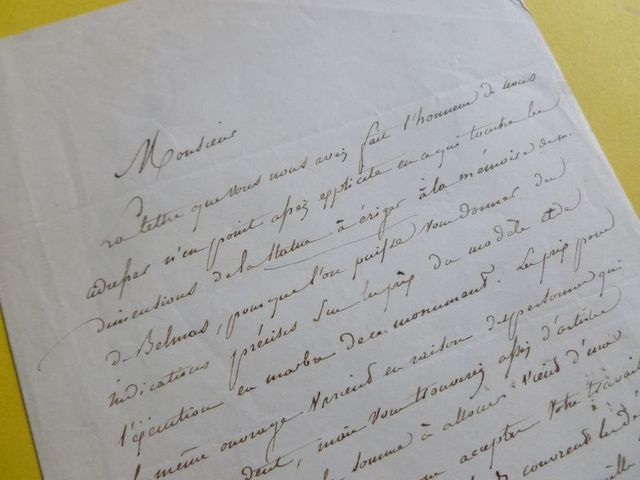 Monsieur
La lettre que vous nous avez fait l'honneur de nous
adresser n'en point assez explicite en ce qui touche les
dimensions de la statue à ériger à la mémoire de m.
de Belmas, pour que l'on puisse vous donner du
indications précises sur le prix du modèle et de
l'exécution en marbre de ce monument. Le prix pour
le même ouvrage varient en raison des personnes qui
dent, mais vous trouverez assez d'artistes
somme à allouer vient d'une
accepter votre travail